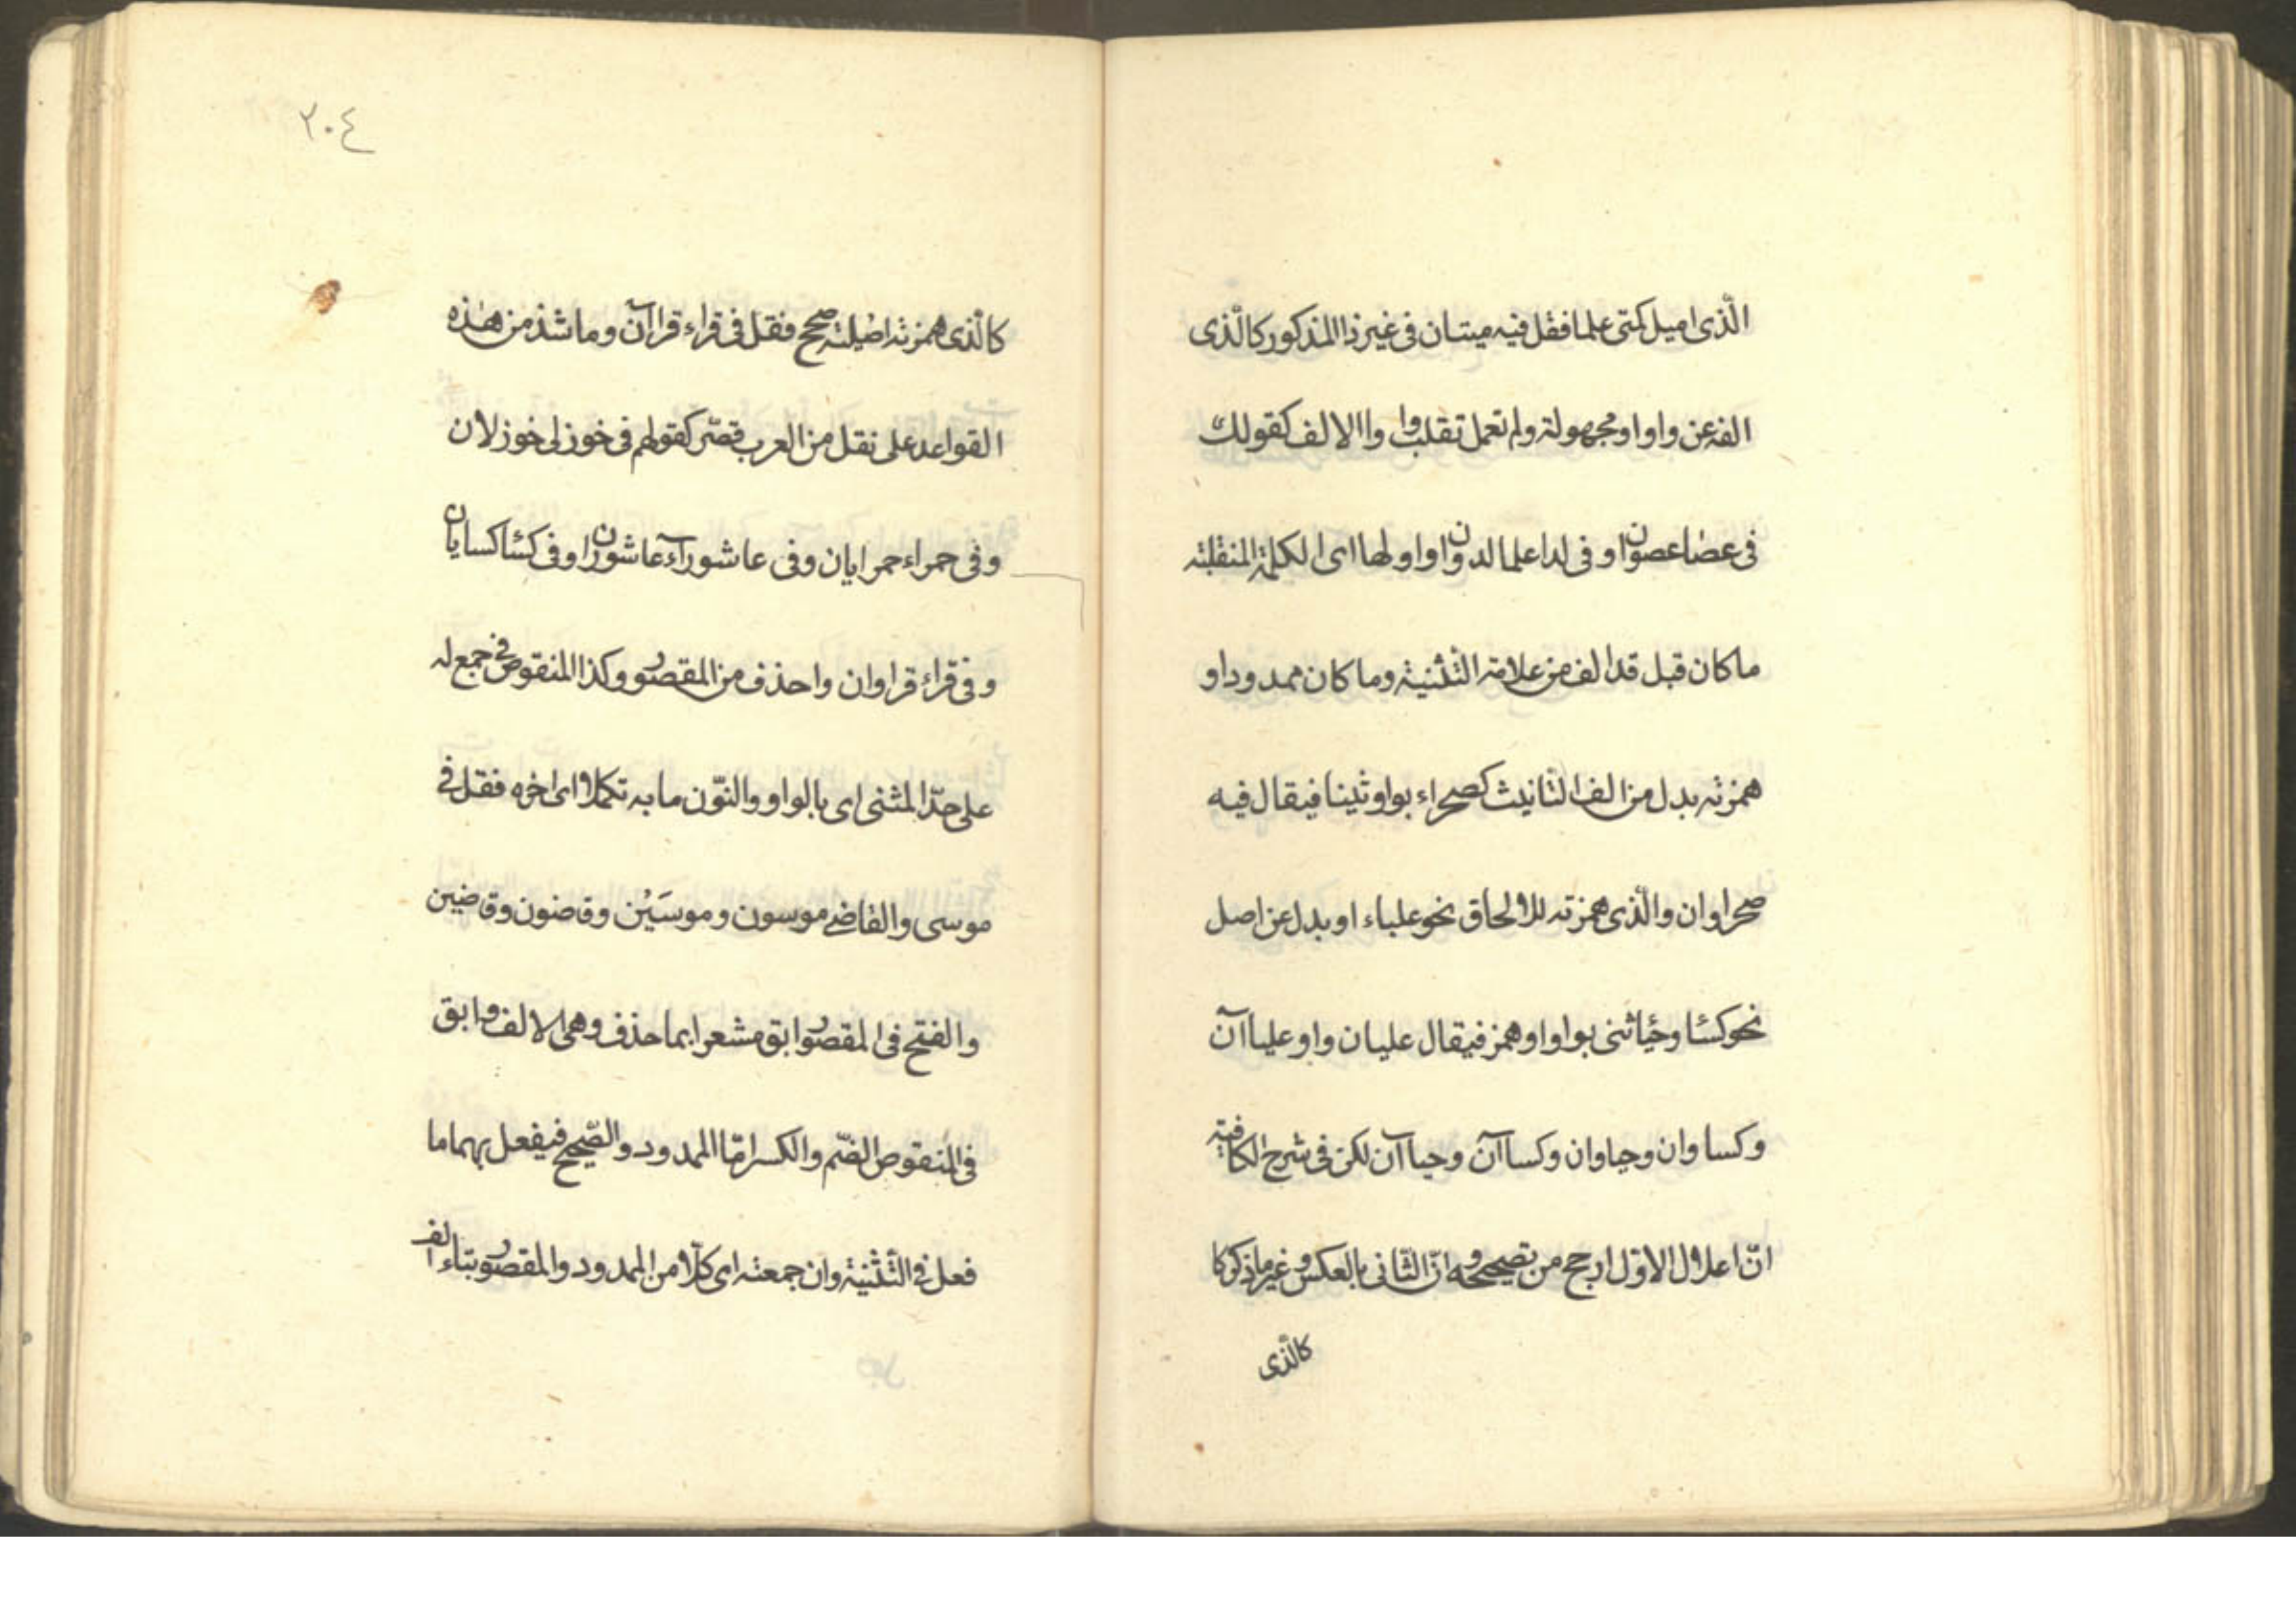 الّذى اميل كمتى علما فقل فيه ميتان فى غير ذا المذكور كالّذى
الفه عن واو او مجهولة ولم تعمل تقلب واوا الالف كقولك
فى عصا عصوان وفى لدا علما لدوان واولها اى الكلمة المنقلبته
ما كان قبل قد الف من علامة التّثنية وما كان ممدودا و
همزته بدل من الف التانيث كصحراء بواو ثينا فيقال فيه
صحراوان والّذى همزته للالحاق نحو علباء او بدل عن اصل
نحو كسا وحيا ثنى بواو او همز فيقال عليان واو علياآن
وكساوان وحياوان وكساآن وحياآن لكن فى شرح الكافية
انّ اعلال الاوّل ارجح من تصحيحه وانّ الثّانى بالعكس وغير ما ذكر كا
كالّذى
٢٠٤
كالّذى همزته اصليته صحح فقل فى قراء قراآن وما شذ من هذه
القواعد على نقل من العرب قصّر كقولهم فى خوزلى خوزلان
وفى حمراء حمرايان وفى عاشوراء عاشوران وفى كسا كسايان
وفى قراء قراوان واحذف من المقصور وكذا المنقوص فى جمع له
على حدّ المثنى اى بالواو والنّون ما به تكملا اى اخره فقل فى
موسى والقاضى موسون وموسَيْن وقاضون وقاضين
والفتح فى المقصور ابق مشعرا بما حذف وهى الالف وابق
فى المنقوص الضّم والكسر امّا الممدود والصّحيح فيفعل بهما ما
فعل فى التّثنية وان جمعته اى كلّا من الممدود والمقصور بتاء الف